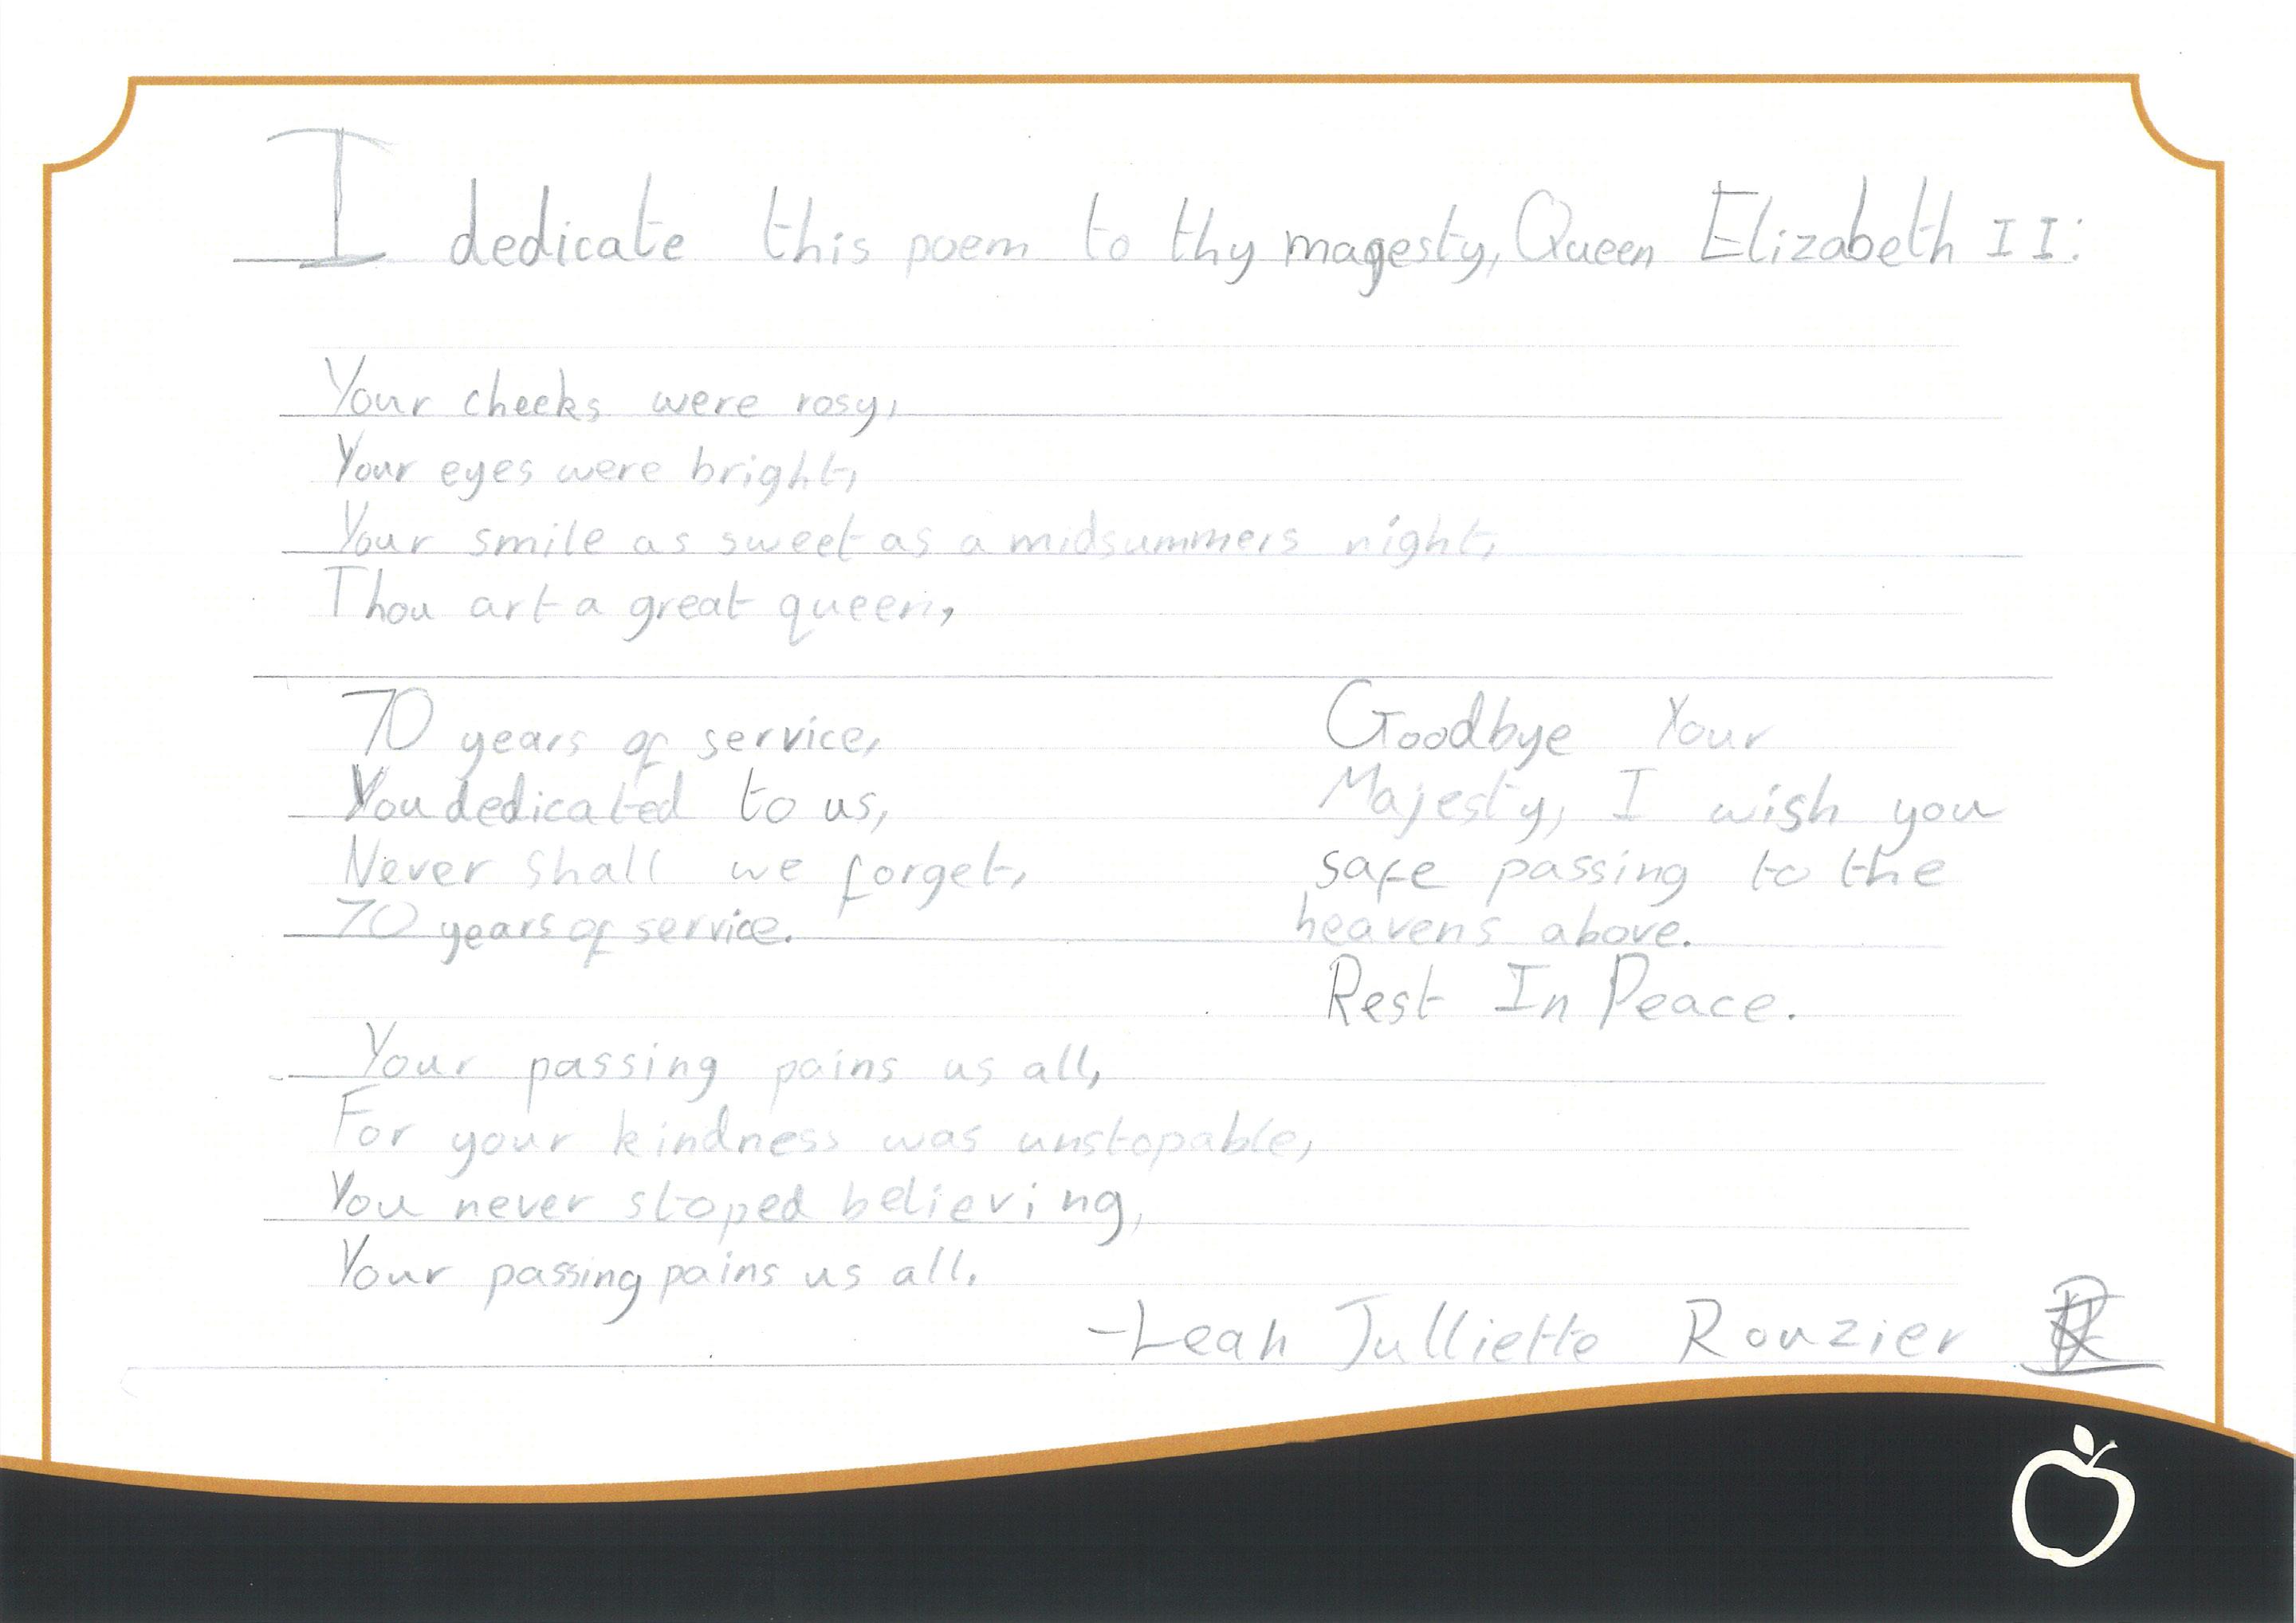 I dedicate this poem to thy magesty, Queen Elizabeth II:
Your cheeks were rosy,
Your eyes were bright,
Your smile as sweet as a midsummers night,
Thou art a great queen,
70 years of service,
You dedicated to us,
Never shall we forget,
70 years of service.
Goodbye Your
Majesty, I wish you
safe passing to the
heavens above.
Rest In Peace.
Your passing pains us all,
For your kindness was unstopable,
You never stoped believing,
Your passing pains us all.
-Leah Julliette Rouzier